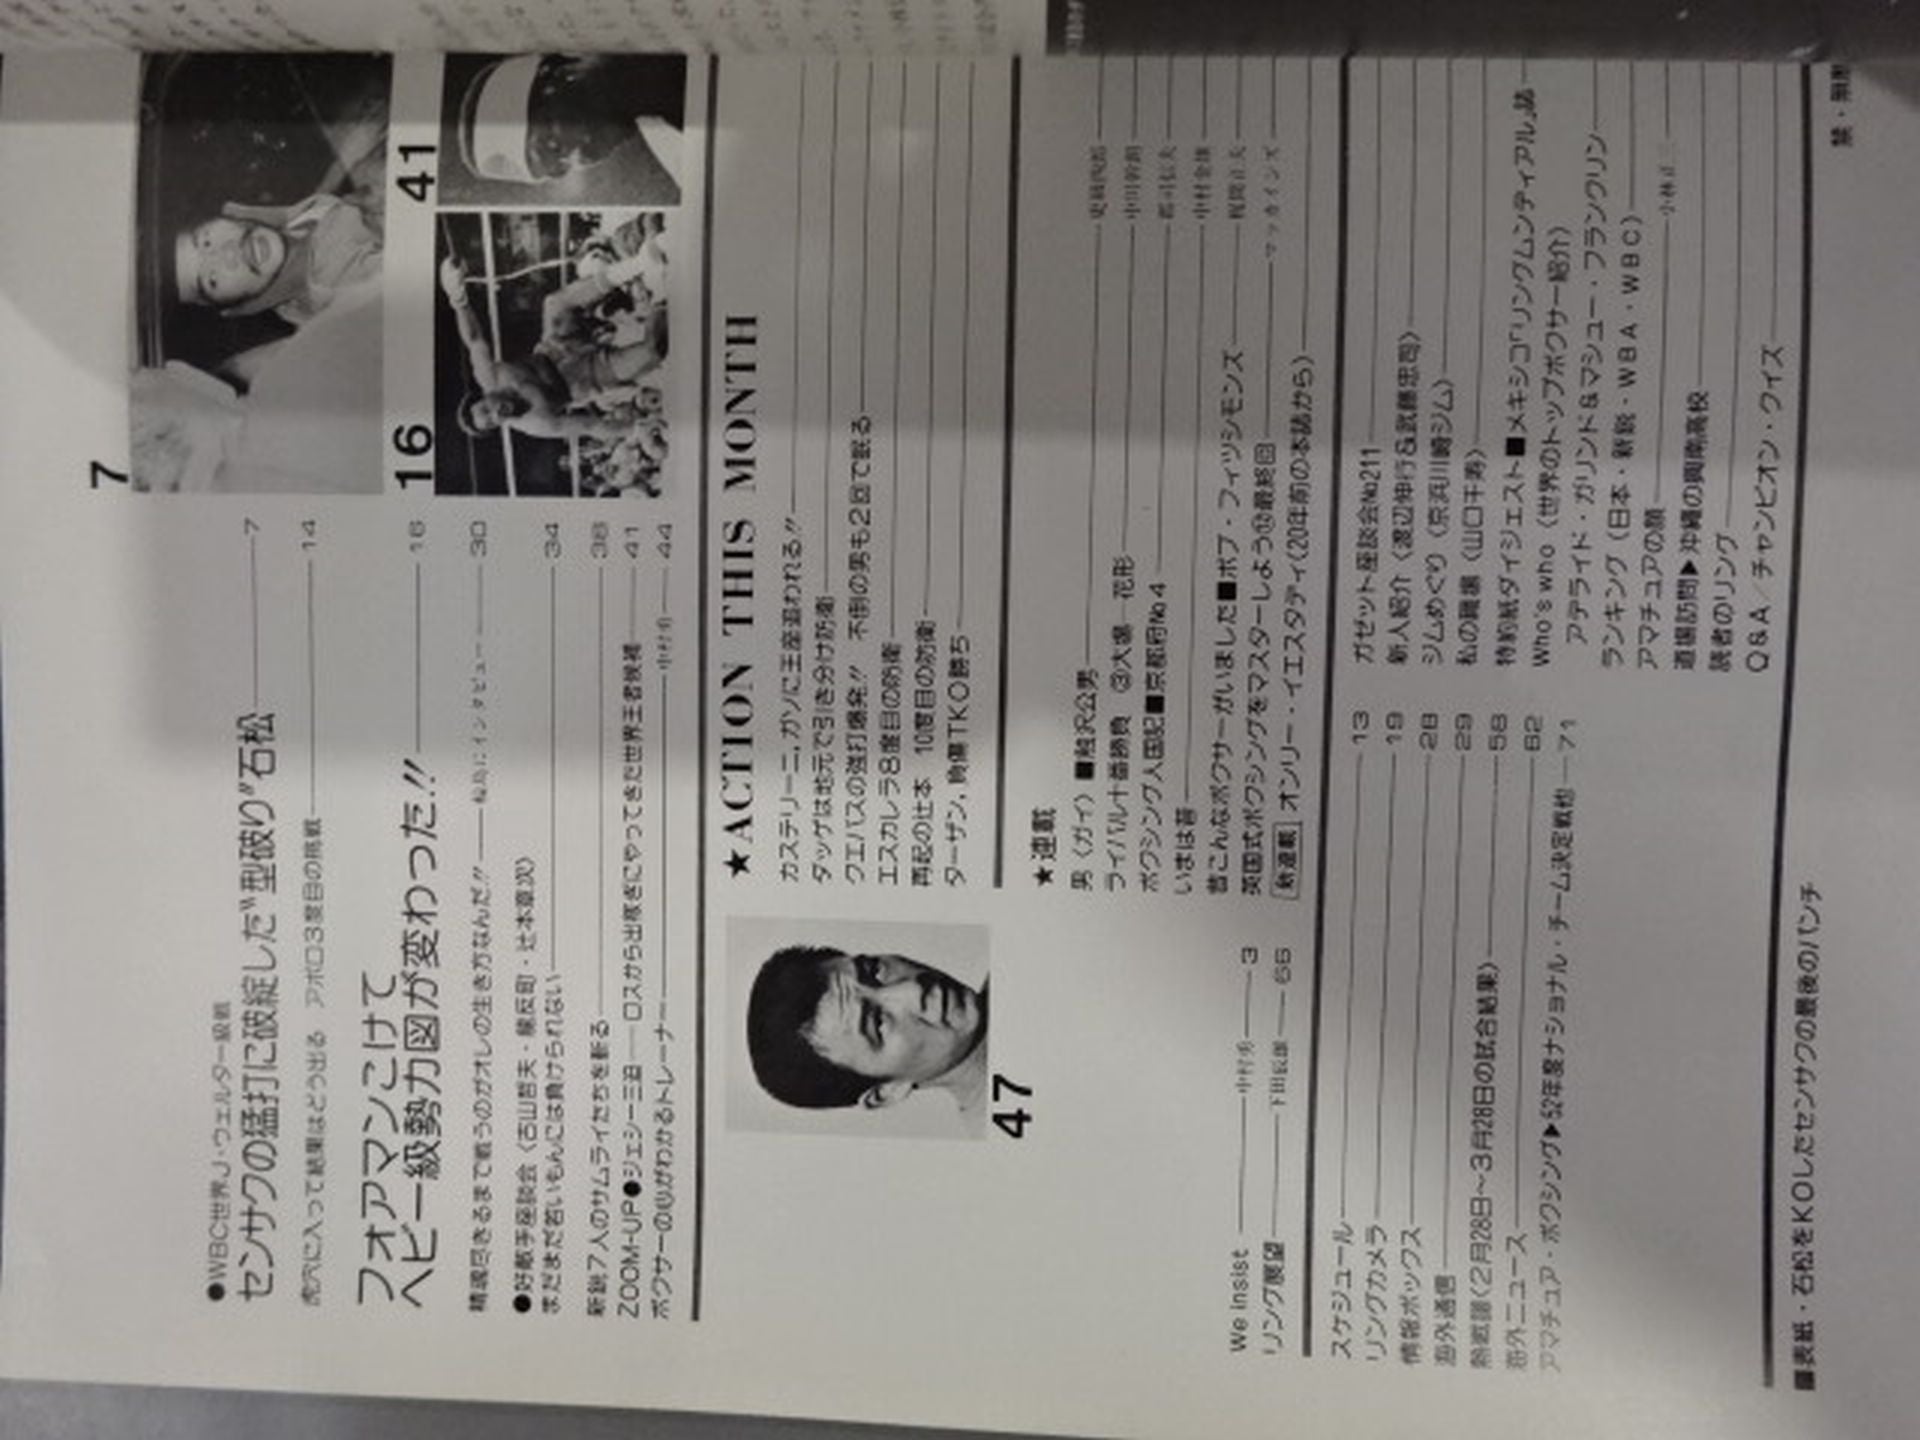 ●WBC世界J・ウェルター級戦
センサクの猛打に破綻した〝型破り〟石松 7
虎穴に入って結果はどう出る アポロ3度目の挑戦 14
フォアマンこけて
ヘビー級勢力図が変わった!! 16
精魂尽きるまで戦うのがオレの生き方なんだ!! 輪島にインタビュー 30
●好敵手座談会〈古山哲夫・龍反町・辻本章次〉
まだまだ若いもんには負けられない 34
新鋭7人のサムライたちを斬る 38
ZOOM-UP●ジェシー三迫 ロスから出稼ぎにやってきた世界王者候補 41
ボクサーの心がわかるトレーナー 中村勇一 44
7
16
41
★ACTION THIS MONTH
カステリーニ,ガソに王座追われる!!
タッゲは地元で引き分け防衛
クエバスの強打爆発!! 不倒の男も2回で眠る
エスカレラ8度目の防衛
再起の辻本 10度目の防衛
ターザン,負傷TKO勝ち
47
★連載
男〈ガイ〉■触沢公男
ライバル十番勝負 ③大場 花形 中川幹朗
ボクシング人国記■京都府No.4 郡司信夫
いまは昔 中村金雄
昔こんなボクサーがいました■ボブ・フィッシモンズ 梶間正夫
英国式ボクシングをマスターしよう⑫最終回 マッカインズ
新連載 オンリー・イエスタディ(20年前の本誌から)
We insist 中村勇一 3
リング展望 下田辰雄 66
スケジュール 13
リングカメラ 19
情報ボックス 28
海外通信 29
熱戦譜〈2月28日〜3月28日の試合結果〉 58
海外ニュース 62
アマチュア・ボクシング▶52年度ナショナル・チーム決定戦他 71
ガゼット座談会No.211
新人紹介〈渡辺伸行&武藤忠司〉
ジムめぐり〈京浜川崎ジム〉
私の職場〈山口千寿〉
特約紙ダイジェスト■メキシコ「リングムンディアル」誌
Who's who〈世界のトップボクサー紹介〉
アデライド・ガリンド&マシュー・フランクリン
ランキング〈日本・新鋭・WBA・WBC〉
アマチュアの顔 小林正三
道場訪問▶沖縄の興南高校
読者のリング
Q&A／チャンピオン・クイズ
■表紙・石松をKOしたセンサクの最後のパンチ
禁・無断